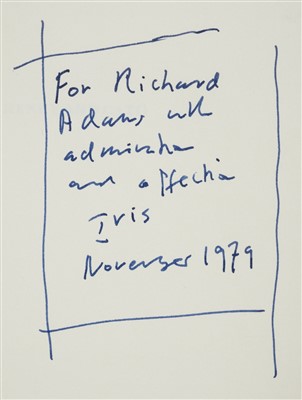 For Richard
Adams with
admiration
and affection
Iris
November 1979